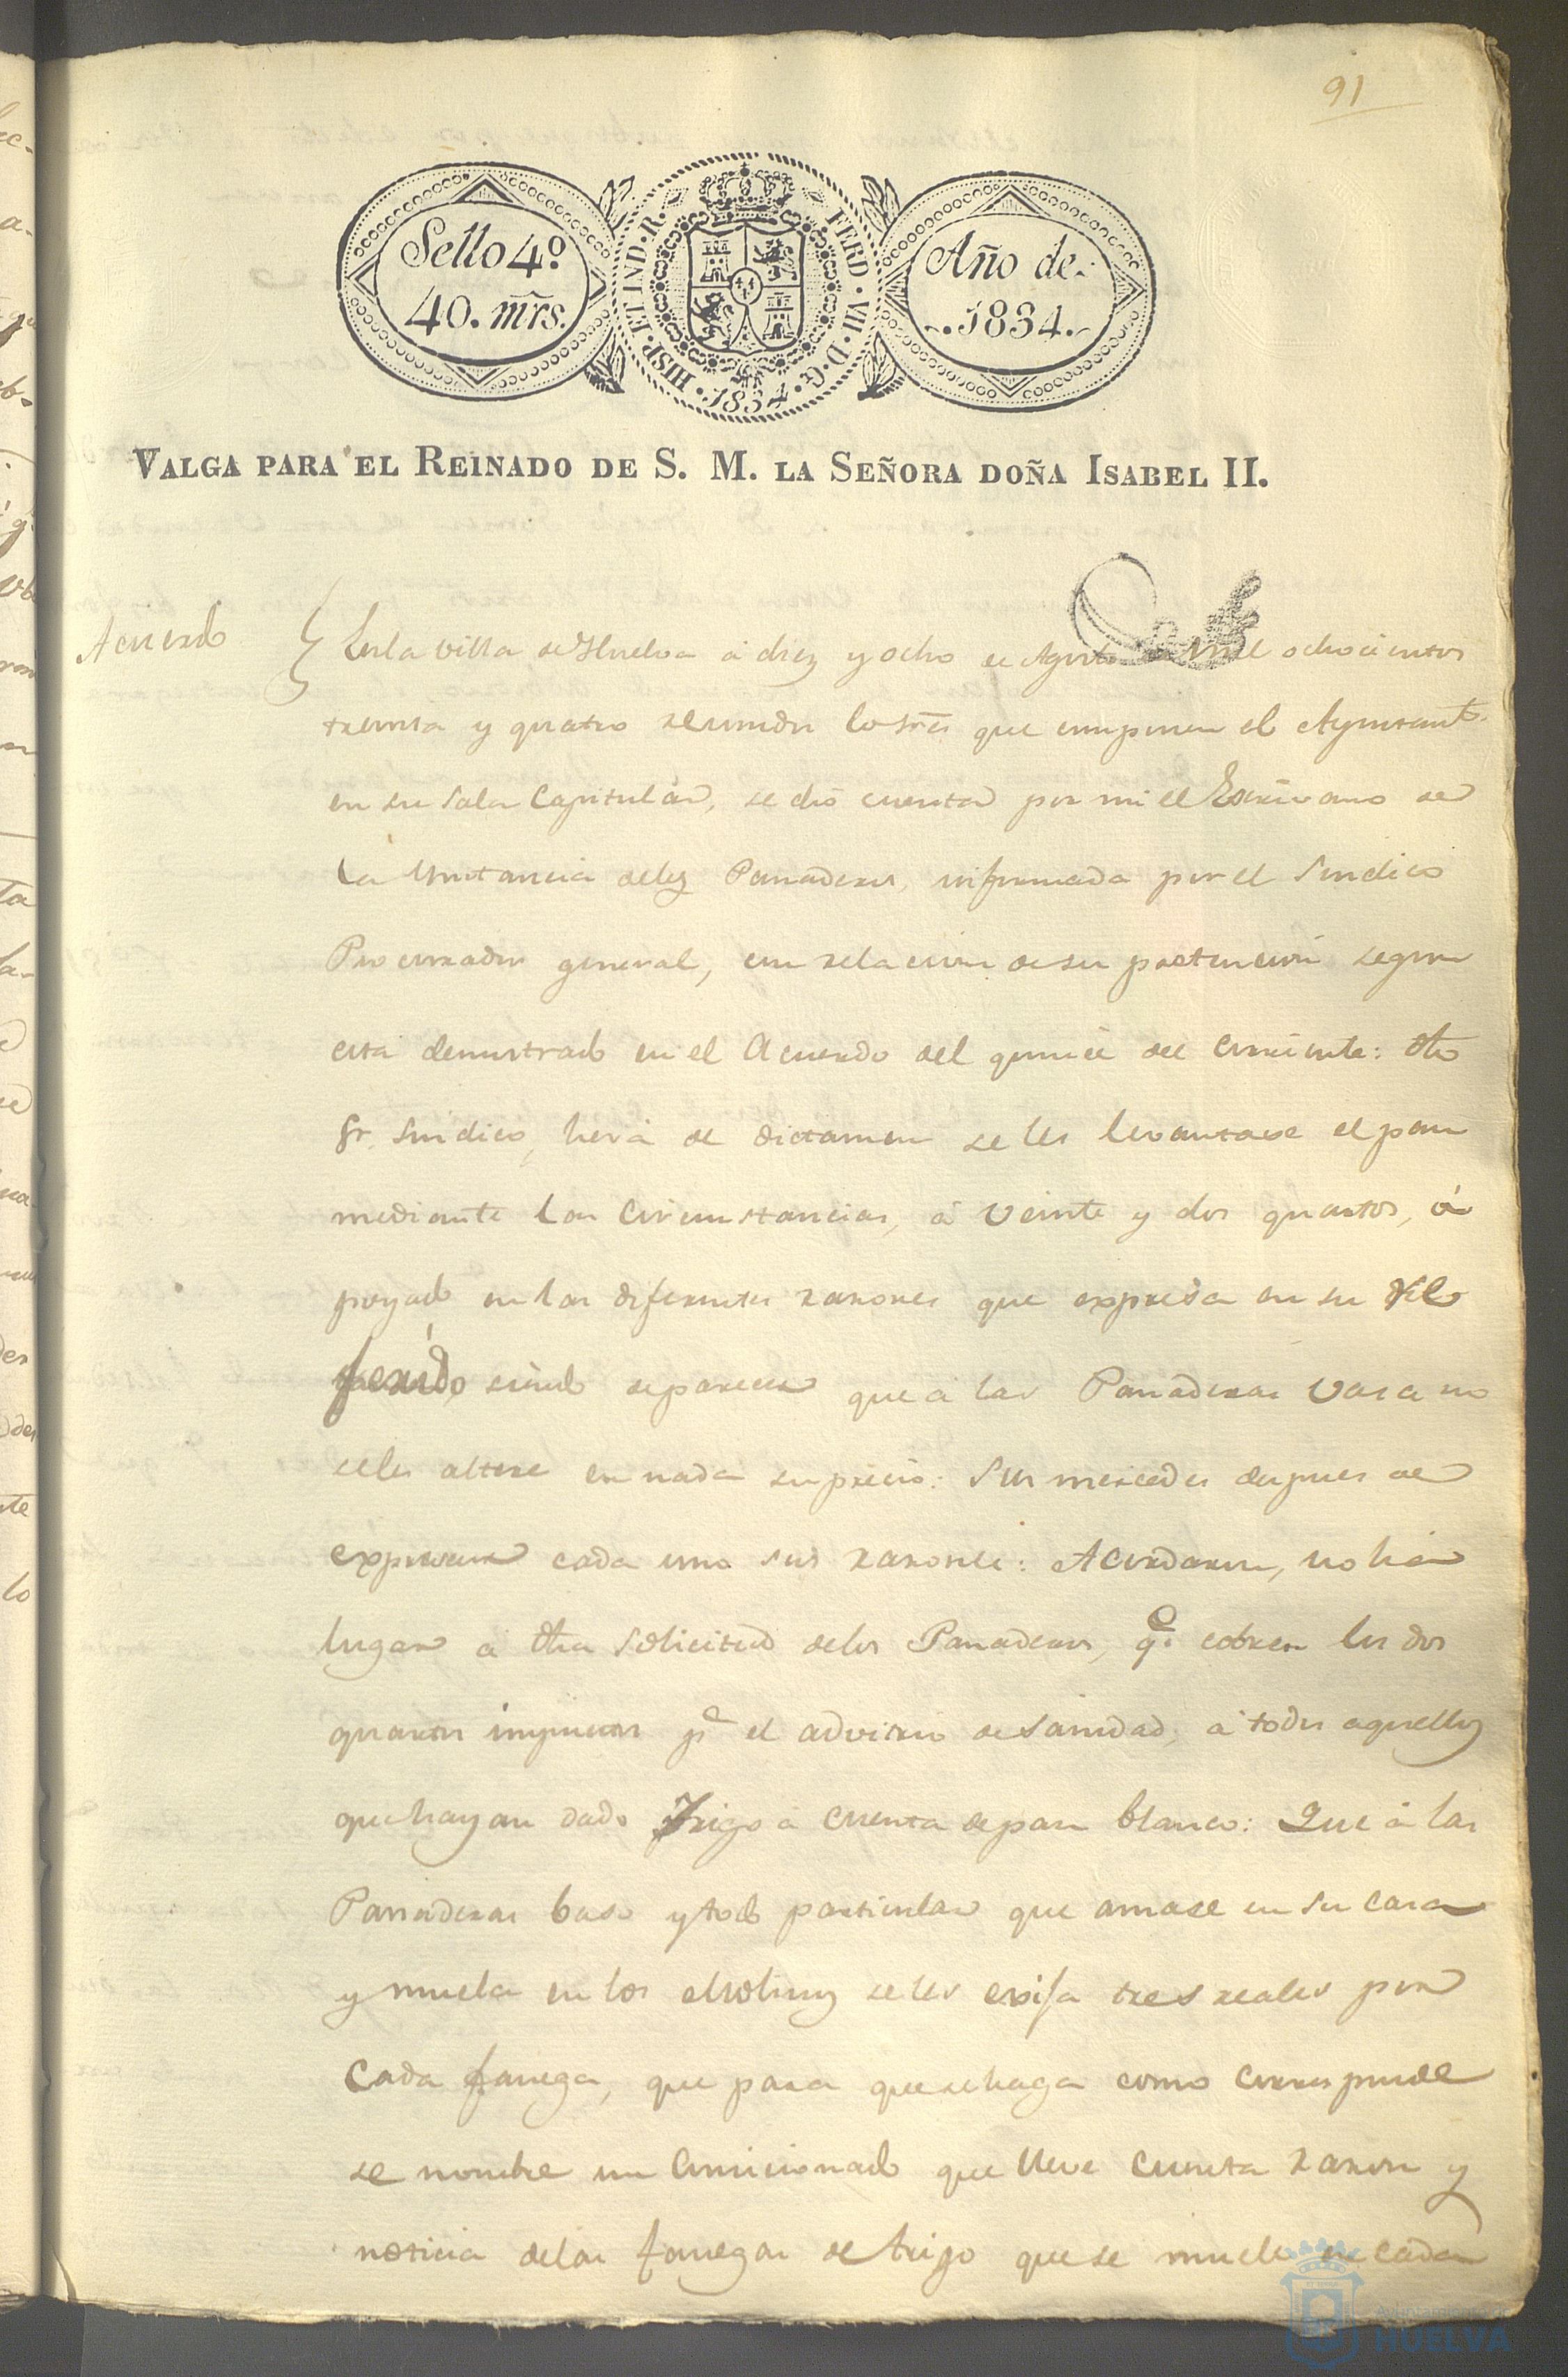 91
Sello 4º
40. mrs.
HISP. ET IND. R. FERD. VII. D. G. 1834.
Año de
1834.
VALGA PARA EL REINADO DE S. M. LA SEÑORA DOÑA ISABEL II.
Acuerdo
Enla villa de Huelva á diez y ocho de Agosto de mil ochocientos
treinta y quatro reunidos los Sres que componen el Ayuntamto
en su Sala Capitular, se dió cuenta por mi el Escrivano de
la instancia delos Panaderos, informada por el Sindico
Procurador general, con relacion de su pretencion segun
está demostrado en el Acuerdo del quince del corriente: dho
Sr Sindico, herá de dictamen se les levantase el pan
mediante las circunstancias, á veinte y dos quartos, á
poyado en las diferentes razones que expresa en su
siendo deparecer que á las Panaderas vasa no
seles altere en nada su precio: Sus mercedes despues de
expresar cada uno sus razones: Acordaron, no há
lugar á dha solicitud delos Panaderos, qe cobren los dos
quartos impuestos pa el advitrio de Sanidad, á todos aquellos
que hayan dado Trigo á cuenta depan blanco: Que á las
Panaderas baso y todo particular que amase en su casa
y muela en los Molinos seles exija tres reales por
Cada fanega, que para quesehaga como corresponde
se nombre un Comicionado que lleve cuenta razon y
noticia delas fanegas de trigo que se muele en cada
Ayuntamiento de
HUELVA